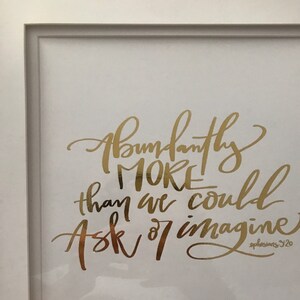 Abundantly
MORE
than we could
Ask or imagine
ephesians 3:20